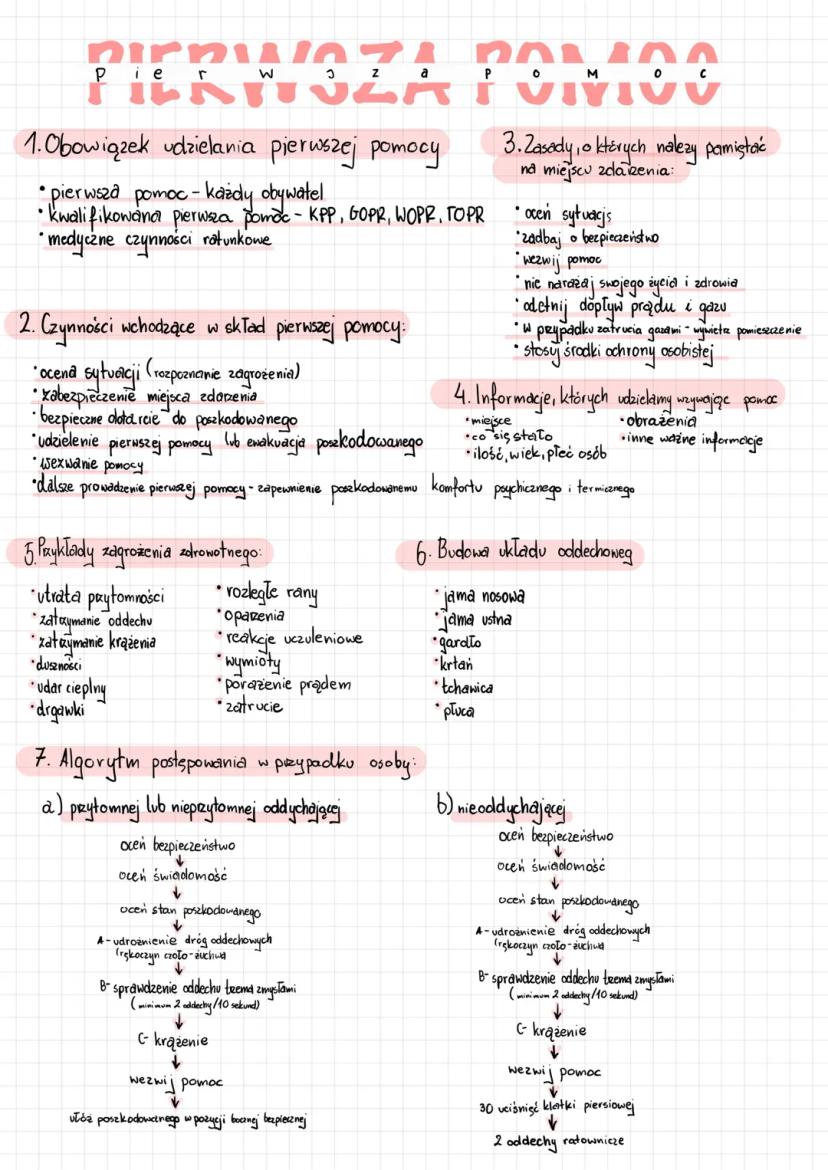 PIERWSZA POMOC
pierwsza pomoc
1. Obowiązek udzielania pierwszej pomocy
• pierwsza pomoc - każdy obywatel
• kwalifikowana pierwsza pomoc - KPP, GOPR, WOPR, TOPR
• medyczne czynności ratunkowe
2. Czynności wchodzące w skład pierwszej pomocy:
• ocena sytuacji (rozpoznanie zagrożenia)
• zabezpieczenie miejsca zdarzenia
• bezpieczne dotarcie do poszkodowanego
• udzielenie pierwszej pomocy lub ewakuacja poszkodowanego
• wezwanie pomocy
• dalsze prowadzenie pierwszej pomocy - zapewnienie poszkodowanemu komfortu psychicznego i termicznego
3. Zasady, o których należy pamiętać
na miejscu zdarzenia:
• oceń sytuację
• zadbaj o bezpieczeństwo
• wezwij pomoc
• nie narażaj swojego życia i zdrowia
• odetnij dopływ prądu i gazu
• w przypadku zatrucia gazami - wywietrz pomieszczenie
• stosuj środki ochrony osobistej
4. Informacje, których udzielamy wzywając pomoc
• miejsce
• co się stało
• ilość, wiek, płeć osób
• obrażenia
• inne ważne informacje
5. Przykłady zagrożenia zdrowotnego:
• utrata przytomności
• zatrzymanie oddechu
• zatrzymanie krążenia
• duszności
• udar cieplny
• drgawki
• rozległe rany
• oparzenia
• reakcje uczuleniowe
• wymioty
• porażenie prądem
• zatrucie
6. Budowa układu oddechoweg
• jama nosowa
• jama ustna
• gardło
• krtań
• tchawica
• płuca
7. Algorytm postępowania w przypadku osoby:
a) przytomnej lub nieprzytomnej oddychającej
oceń bezpieczeństwo
↓
oceń świadomość
↓
oceń stan poszkodowanego
↓
A - udrożnienie dróg oddechowych
(rękoczyn czoło-żuchwa
↓
B - sprawdzenie oddechu trzema zmysłami
(minimum 2 oddechy/10 sekund)
↓
C - krążenie
↓
wezwij pomoc
↓
ułóż poszkodowanego w pozycji bocznej bezpiecznej
b) nieoddychającej
oceń bezpieczeństwo
↓
oceń świadomość
↓
oceń stan poszkodowanego
↓
A - udrożnienie dróg oddechowych
(rękoczyn czoło-żuchwa
↓
B - sprawdzenie oddechu trzema zmysłami
(minimum 2 oddechy/10 sekund)
↓
C - krążenie
↓
wezwij pomoc
↓
30 uciśnięć klatki piersiowej
↓
2 oddechy ratownicze